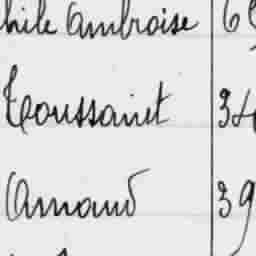 hile Ambroise 6
Toussaint 34
Arnaud 39